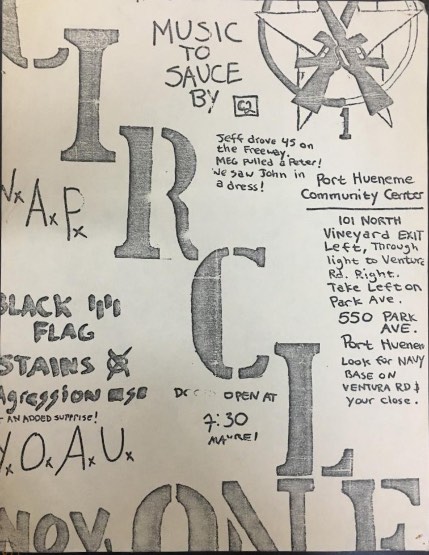 MUSIC
TO
SAUCE
BY C2
CIRCL ONE
1
Jeff drove 45 on
the Freeway,
MEG Pulled a Peter!
We saw John in
a dress!
Port Hueneme
Community Center
101 NORTH
Vineyard EXIT
Left, Through
light to Ventura
Rd. Right.
Take Left on
Park Ave.
550 PARK
AVE.
Port Huenem
Look for NAVY
BASE ON
VENTURA RD &
your close.
.A.P.
BLACK
FLAG
STAINS
Agression
AN ADDED SUPPRISE!
Y.O.A.U.
OPEN AT
7:30
NOV.